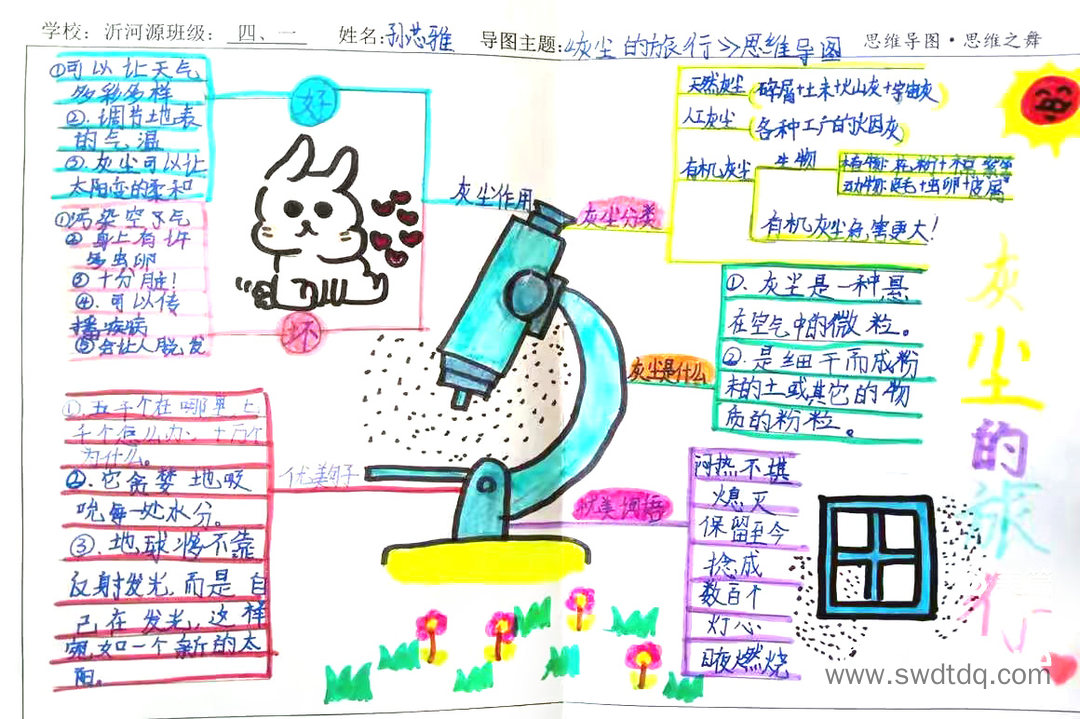 学校：沂河源班级：四、一 姓名:孙芯雅 导图主题:《灰尘的旅行》思维导图 思维导图·思维之舞
①可以让天气
多彩多样
②.调节地表
的气温
③.灰尘可以让
太阳变的柔和
好
①污染空气
②身上有许
多虫卵
③十分脏！
④.可以传
播疾病
⑤会让人脱发
坏
灰尘作用
灰尘分类
天然灰尘(碎屑+土末+火山灰+宇宙灰)
人工灰尘(各种工厂的灰)
有机灰尘
生物
植物:花粉+
动物:皮毛+虫卵+皮屑
有机灰尘危害更大！
灰尘是什么
①.灰尘是一种悬
在空气中的微粒。
②.是细干而成粉
末的土或其它的物
质的粉粒。
优美句子
①.五千个在哪里上
千个怎么办.十万个
为什么。
②.它贪婪地吸
吮每一处水分。
③.地球将不靠
反射发光,而是自
己在发光,这样
宛如一个新的太
阳。
优美词语
闷热不堪
熄灭
保留至今
捻成
数百个
灯心
日夜燃烧
灰尘的旅行
www.swdtdq.com